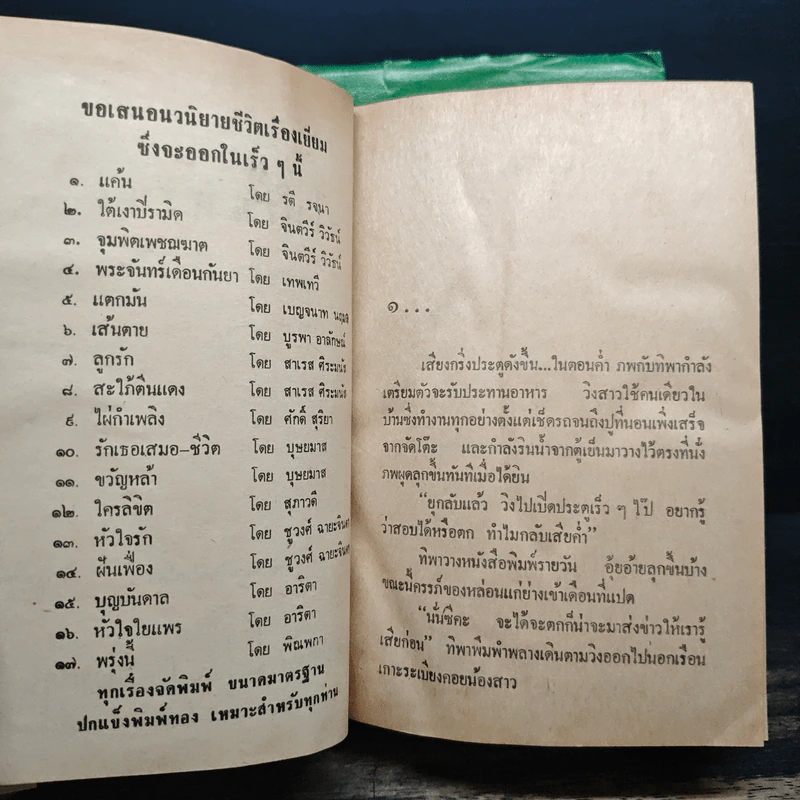 ขอเสนอนวนิยายชีวิตเรื่องเยี่ยม
ซึ่งจะออกในเร็ว ๆ นี้
๑. แค้น โดย รตี รจนา
๒. ใต้เงาปิรามิด โดย จินตวีร์ วิวัธน์
๓. จุมพิตเพชฌฆาต โดย จินตวีร์ วิวัธน์
๔. พระจันทร์เดือนกันยา โดย เทพเทวี
๕. แตกมัน โดย เบญจนาท
๖. เส้นตาย โดย บูรพา อาลักษณ์
๗. ลูกรัก โดย สาเรส ศิระมนัง
๘. สะใภ้ตีนแดง โดย สาเรส ศิระมนัง
๙. ไผ่กำเพลิง โดย ศักดิ์ สุริยา
๑๐. รักเธอเสมอ-ชีวิต โดย บุษยมาส
๑๑. ขวัญหล้า โดย บุษยมาส
๑๒. ใครลิขิต โดย สุภาวดี
๑๓. หัวใจรัก โดย ชูวงศ์ ฉายะจินดา
๑๔. ฝันเฟื่อง โดย ชูวงศ์ ฉายะจินดา
๑๕. บุญบันดาล โดย อาริตา
๑๖. หัวใจใยแพร โดย อาริตา
๑๗. พรุ่งนี้ โดย พิณพกา
ทุกเรื่องจัดพิมพ์ ขนาดมาตรฐาน
ปกแข็งพิมพ์ทอง เหมาะสำหรับทุกท่าน
๑...
เสียงกริ่งประตูดังขึ้น...ในตอนค่ำ ภพกับทิพากำลัง
เตรียมตัวจะรับประทานอาหาร วิงสาวใช้คนเดียวใน
บ้านซึ่งทำงานทุกอย่างตั้งแต่เช็ดรถจนถึงปูที่นอนเพิ่งเสร็จ
จากจัดโต๊ะ และกำลังรินน้ำจากตู้เย็นมาวางไว้ตรงที่นั่ง
ภพผุดลุกขึ้นทันทีเมื่อได้ยิน
"ยุกลับแล้ว วิงไปเปิดประตูเร็ว ๆ ไป๊ อยากรู้
ว่าสอบได้หรือตก ทำไมกลับเสียค่ำ"
ทิพาวางหนังสือพิมพ์รายวัน อุ้ยอ้ายลุกขึ้นบ้าง
ขณะนี้ครรภ์ของหล่อนแก่ย่างเข้าเดือนที่แปด
"นั่นซีคะ จะได้จะตกก็น่าจะมาส่งข่าวให้เรารู้
เสียก่อน" ทิพาพึมพำพลางเดินตามวิงออกไปนอกเรือน
เกาะระเบียงคอยน้องสาว